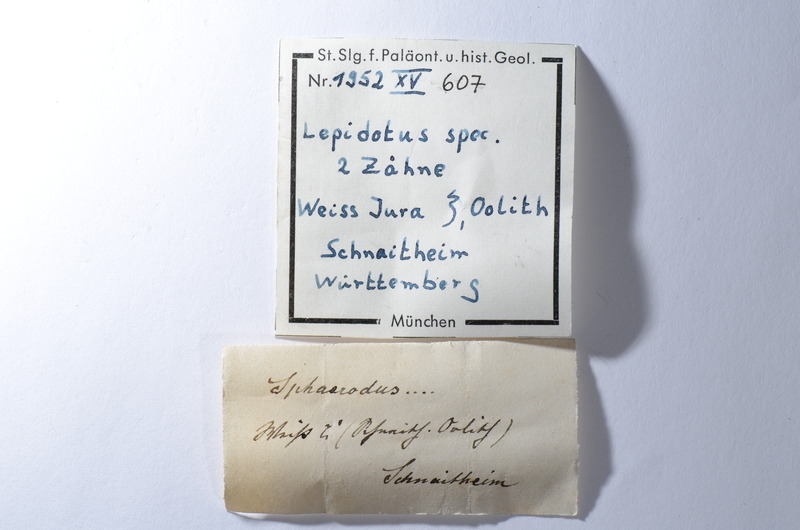 St. Slg. f. Paläont. u. hist. Geol.
Nr. 1952 XV 607
Lepidotus spec.
2 Zähne
Weiss Jura ξ, Oolith
Schnaitheim
Württemberg
München
Sphaerodus....
Weiß ξ (Schnaith. Oolith)
Schnaitheim